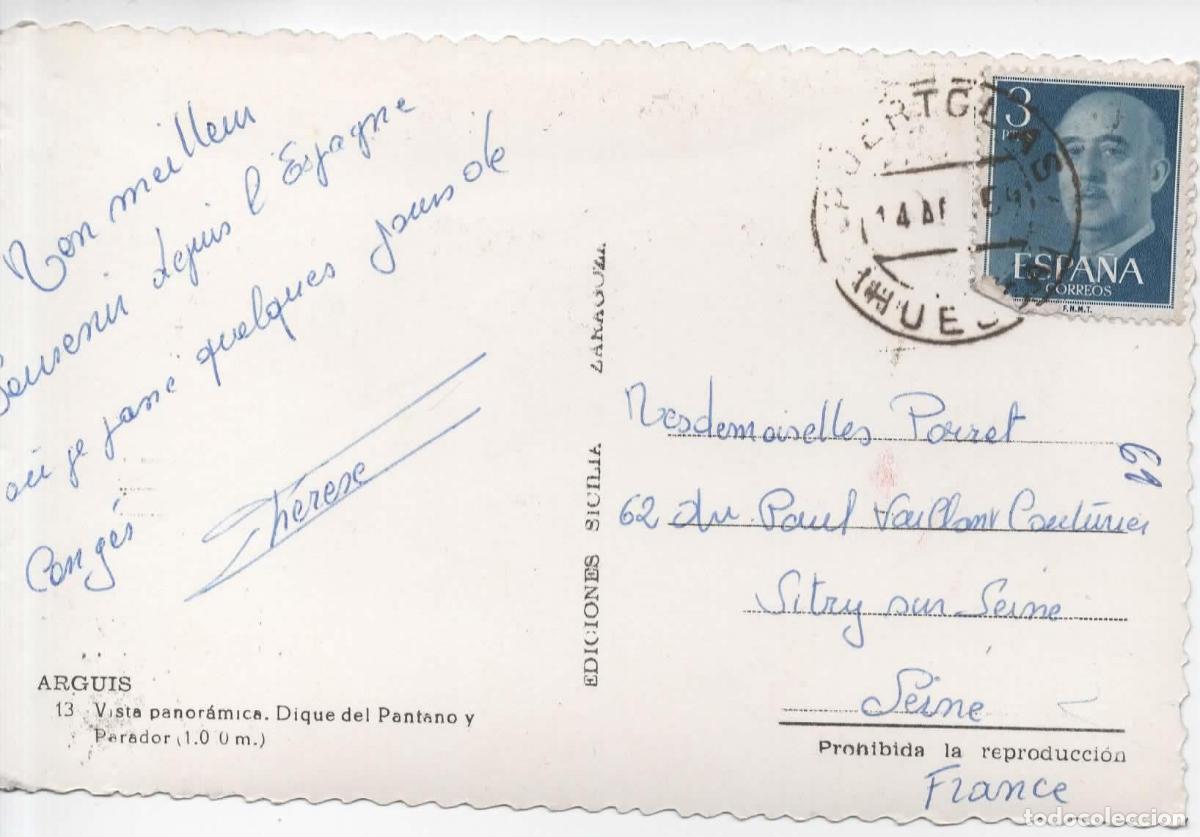 Mon meilleur
Souvenir depuis l'Espagne
où je passe quelques jours de
Congés
Therese
ARGUIS
13 Vista panorámica. Dique del Pantano y
Parador (1.0 0 m.)
EDICIONES SICILIA ZARAGOZA
PUERTOLAS
14 AB
HUES
3
PTS
ESPAÑA
CORREOS
F.N.M.T.
Mesdemoiselles Porret
61
62 Av Paul Vaillant Couturier
Vitry sur Seine
Seine
Prohibida la reproducción
France
todocoleccion